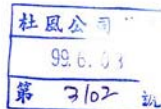 杜風公司
99.6.03
第 3102 號